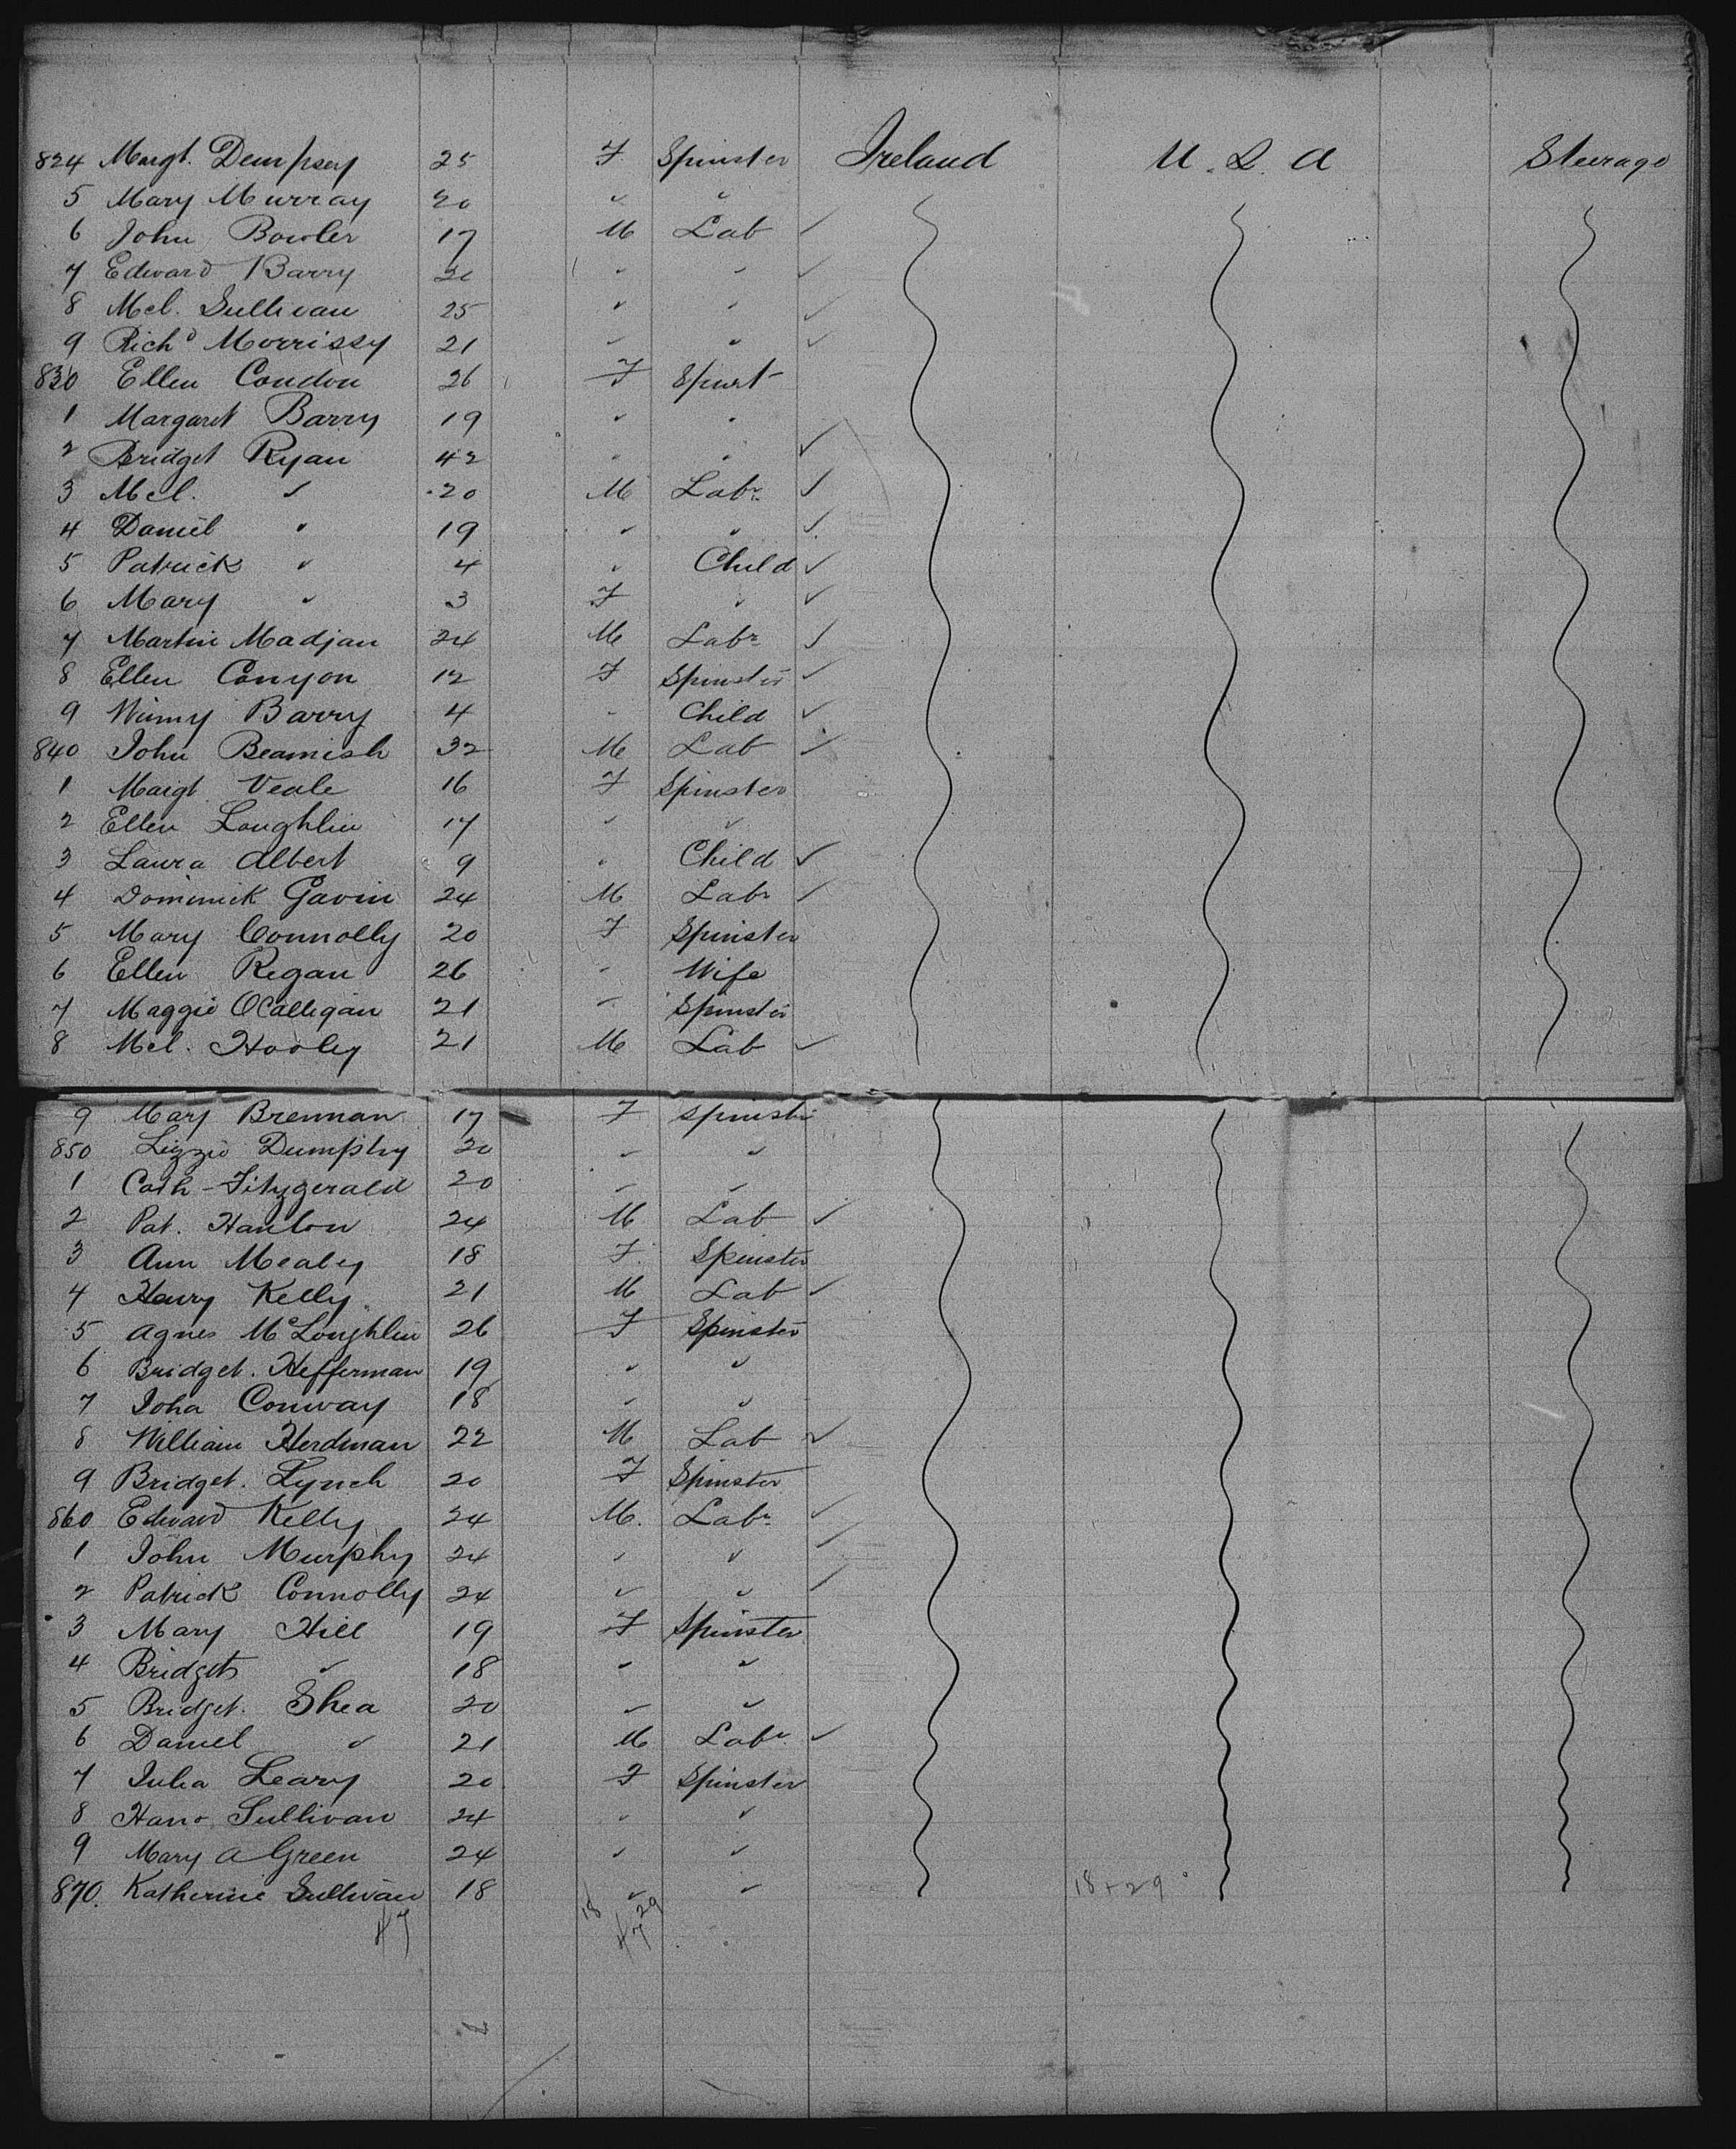 824 Margt. Dempsey 25 F Spinster Ireland U.S.A Steerage
5 Mary Murray 20 " "
6 John Bowler 17 M Lab ✓
7 Edward Barry " " ✓
8 Mcl. Sullivan 25 " " ✓
9 Richd Morrissy 21 " " ✓
830 Ellen Condon 26 F Spinst
1 Margaret Barry 19 " "
2 Bridget Ryan 42 " " ✓
3 Mcl. " 20 M Labr ✓
4 Daniel " 19 " " ✓
5 Patrick " 4 " Child ✓
6 Mary " 3 F " ✓
7 Martin Madjan 24 M Labr ✓
8 Ellen Conyon 12 F Spinster ✓
9 Winny Barry 4 " Child ✓
840 John Beamish 32 M Lab ✓
1 Margt Veale 16 F Spinster
2 Ellen Loughlin 17 " "
3 Laura Albert 9 " Child ✓
4 Dominick Gavin 24 M Labr ✓
5 Mary Connolly 20 F Spinster
6 Ellen Regan 26 " Wife
7 Maggie OCalligan 21 " Spinster
8 Mcl. Hooley 21 M Lab ✓
9 Mary Brennan 17 F Spinster
850 Lizzie Dumphy 20 " "
1 Cath - Fitzgerald 20 " "
2 Pat. Hanlon 24 M Lab ✓
3 Ann Mealey 18 F. Spinster
4 Henry Kelly 21 M Lab ✓
5 Agnes McLoughlin 26 F Spinster
6 Bridget. Hefferman 19 " "
7 Joha Conway 18 " "
8 William Herdman 22 M Lab ✓
9 Bridget. Lynch 20 F Spinster
860 Edward Kelly 24 M. Labr ✓
1 John Murphy 24 " " ✓
2 Patrick Connolly 24 " " ✓
3 Mary Hill 19 F Spinster
4 Bridget " 18 " "
5 Bridget. Shea 20 " "
6 Daniel " 21 M Labr ✓
7 Julia Leary 20 F Spinster
8 Hano Sullivan 24 " "
9 Mary A Green 24 " "
870. Katherine Sullivan 18 " " 18+29
47 18 29
47